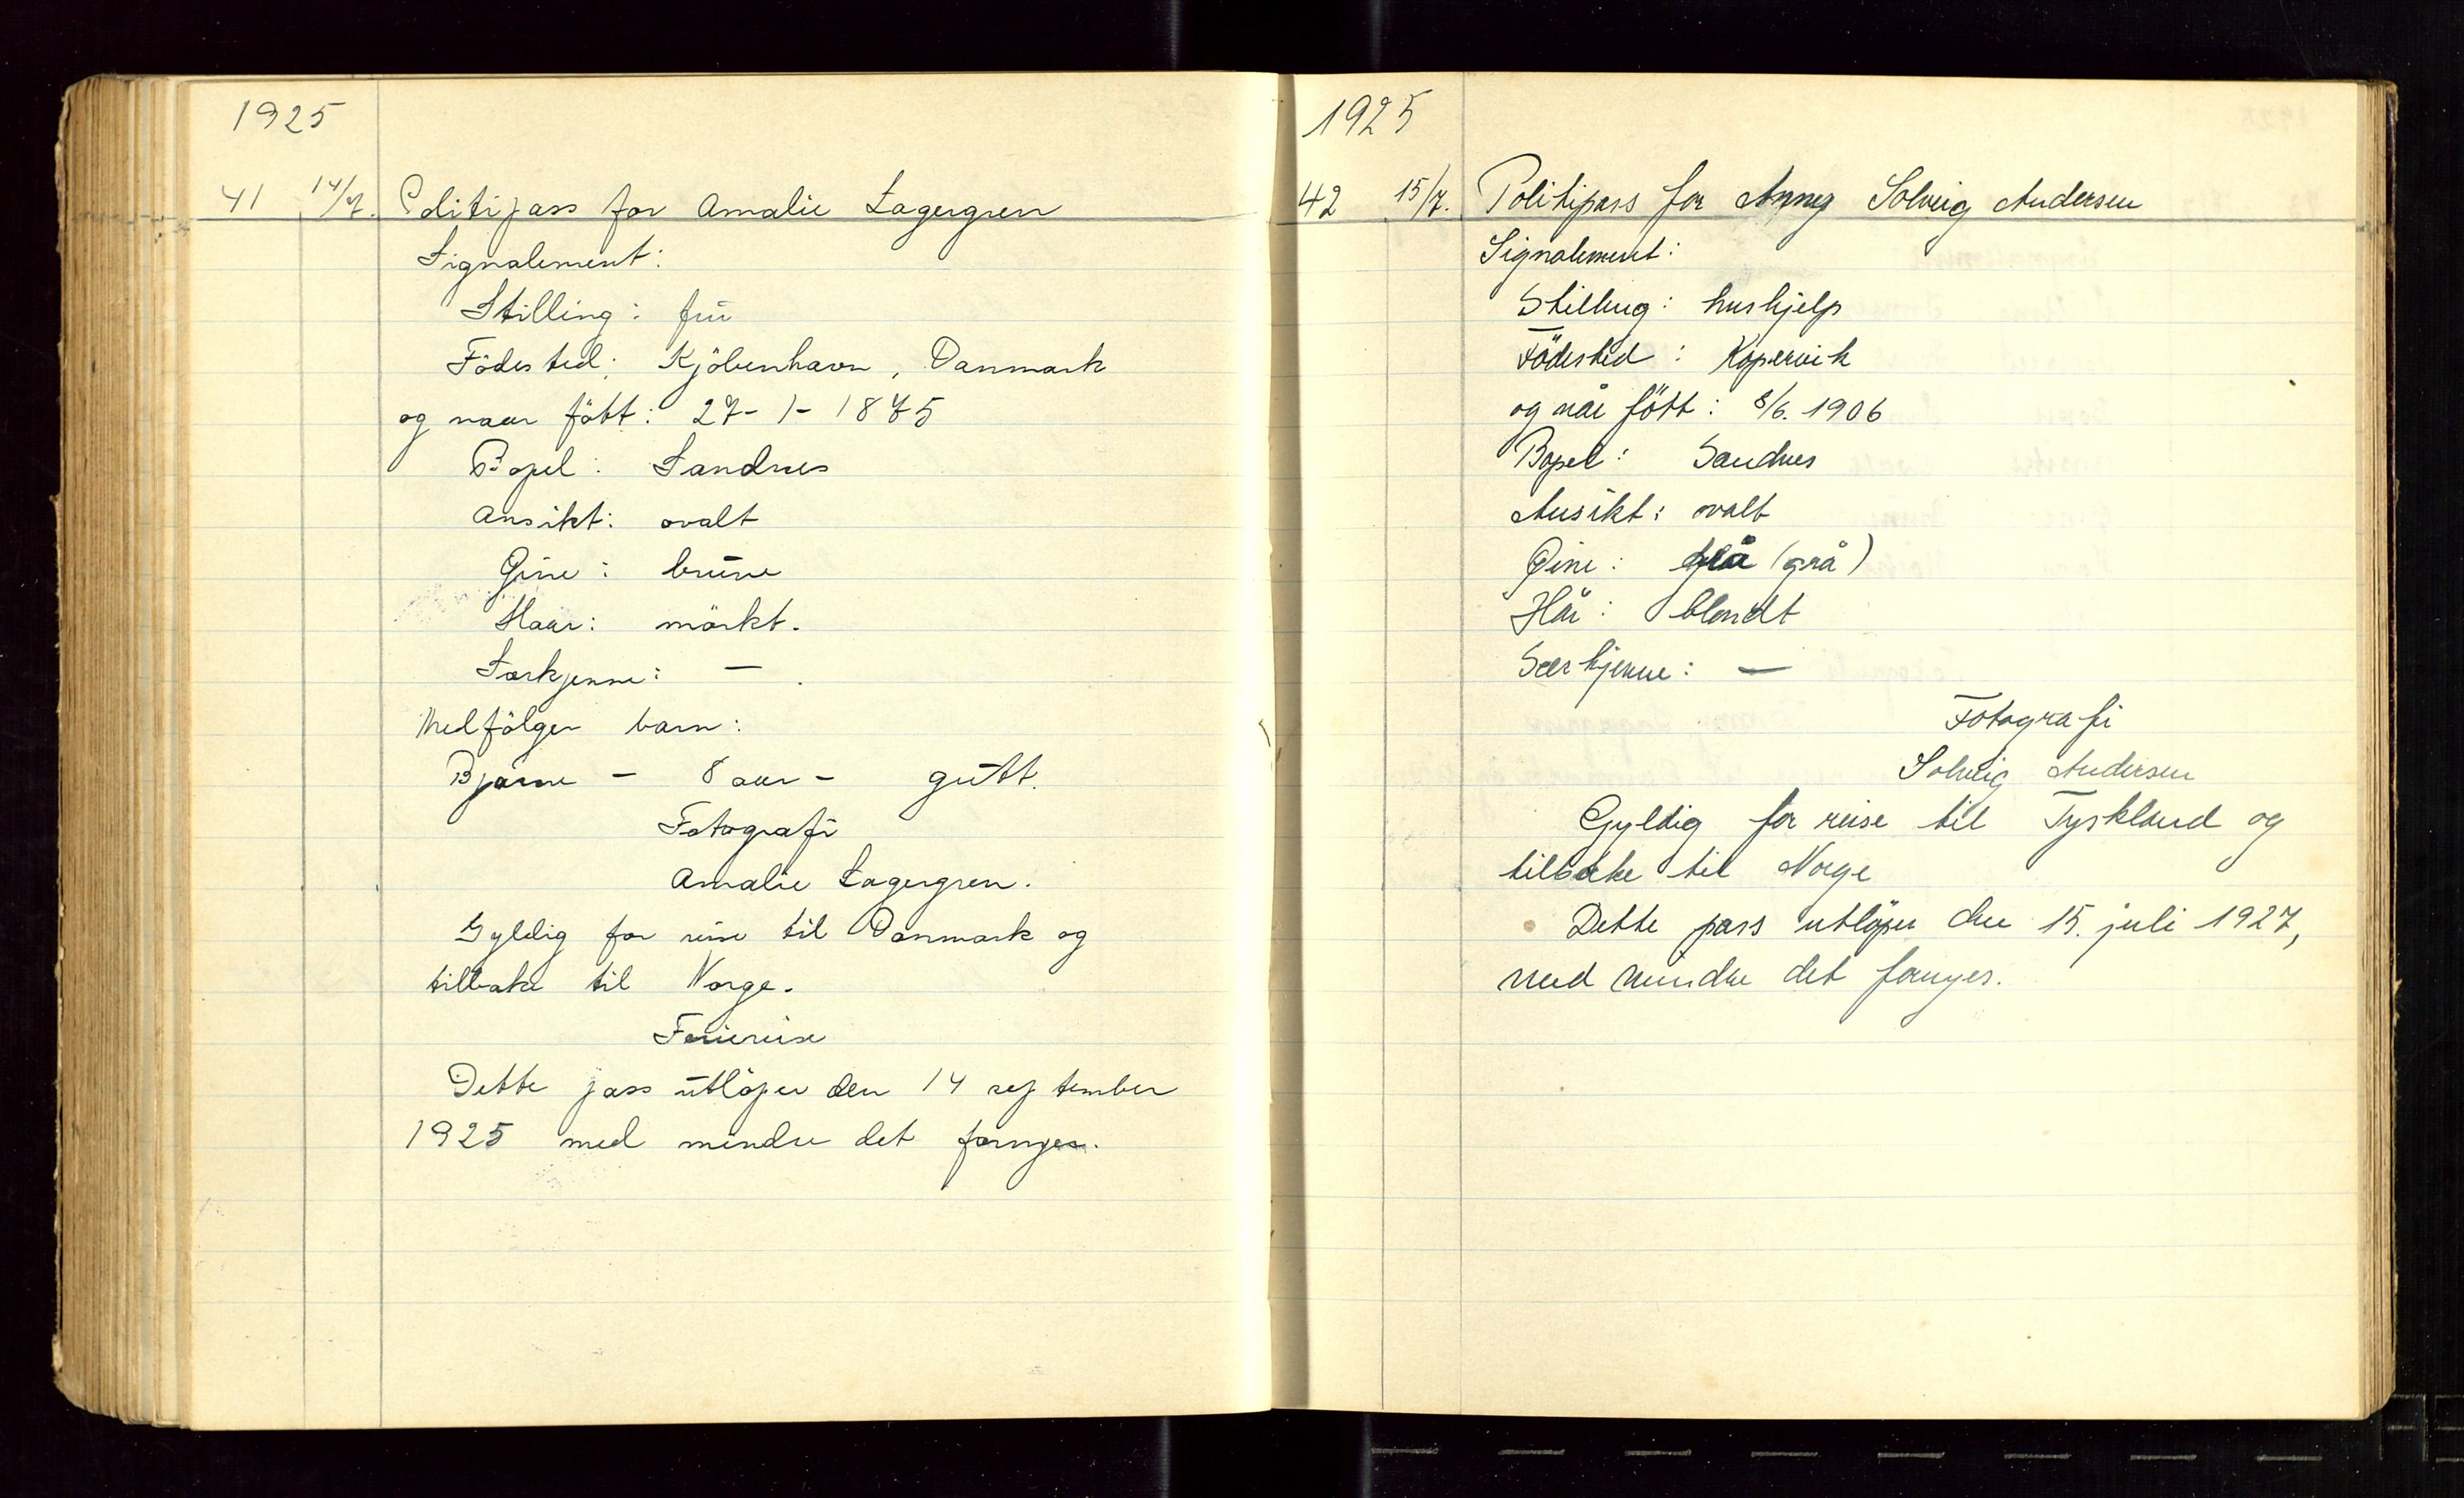 1925
41 14/7. Politipass for Amalie Lagergren
Signalement:
Stilling: frü
Födested: Kjöbenhavn, Danmark
og naar född: 27-1-1875
Bopel: Sandnes
Ansikt: ovalt
Öine: brune
Haar: mörkt.
Særkjenne: — .
Medfölger barn:
Bjarne - 8 aar - gutt.
Fotografi
Amalie Lagergren.
Gyldig for reise til Danmark og
tilbake til Norge.
Feriereise
Dette pass utlöper den 14 september
1925 med mindre det fornyes.
1925
42 15/7. Politipass for Anny Solveig Andersen
Signalement:
Stilling: hushjelp
Födested: Kopervik
og når fött: 8/6. 1906
Bopel: Sandnes
Ansikt: ovalt
Øine: blå (grå)
Hår: blondt
Særkjenne: —
Fotografi
Solveig Andersen
Gyldig for reise til Tyskland og
tilbake til Norge
Dette pass utlöper den 15. juli 1927,
med mindre det fornyes.